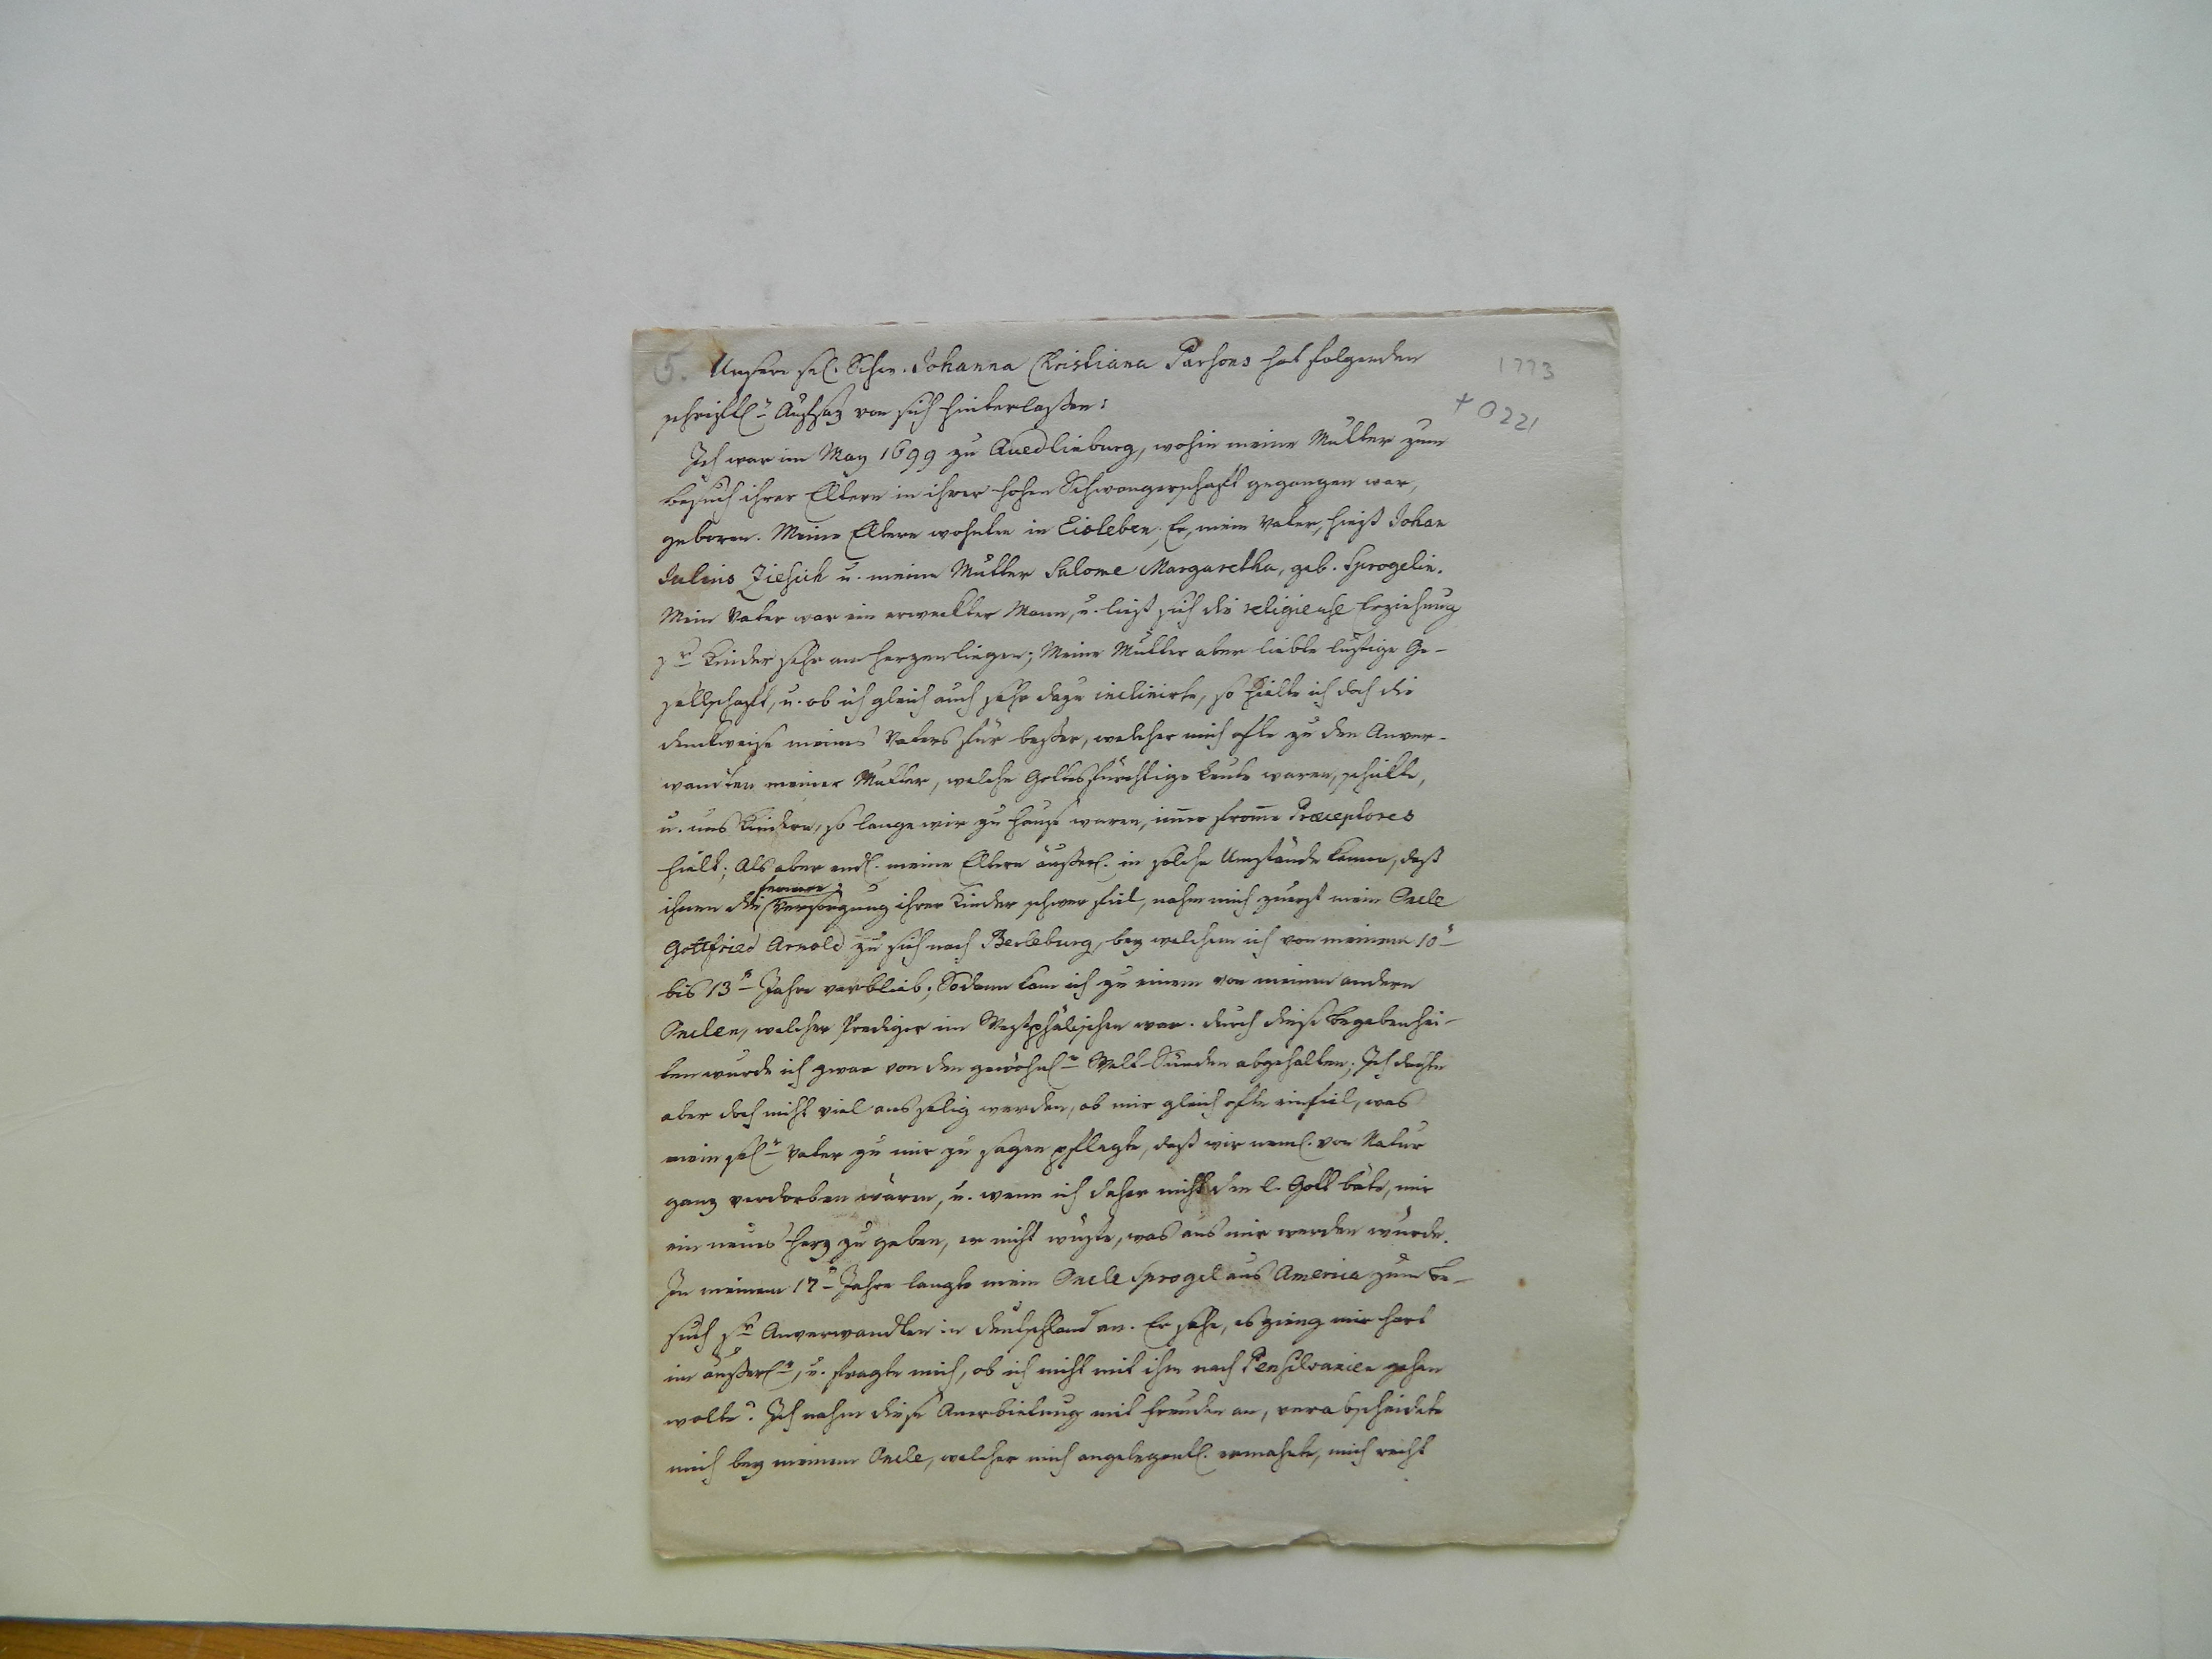 5. Unsere sel. Schw. Johanna Christiana Parsons hat folgenden
1773
schriftln Aufsaz von sich hinterlaßen:
+ 0221
Ich war im May 1699 zu Quedlinburg, wohin meine Mutter zum
besuch ihrer Eltern in ihrer hohen Schwangerschaft gegangen war,
geboren. Meine Eltern wohnten in Eisleben, Er, mein Vater, hieß Johan
Julius Ziesich u. meine Mutter Salome Margaretha, geb. Sprogelin.
Mein Vater war ein erweckter Mann, u. ließ sich die religieuse Erziehung
sr Kinder sehr am Herzen liegen; Meine Mutter aber liebte lustige Ge-
sellschaft, u. ob ich gleich auch sehr dazu inclinirte, so hielte ich doch die
denkweise meines Vaters für beßer, welcher mich ofte zu den Anver-
wandten meiner Mutter, welche Gottesfürchtige Leute waren, schikte,
u. uns Kindern, so lange wir zu Hause waren, imer frome Præceptores
hielt; Als aber endl. meine Eltern äußerl. in solche Umstände kamen, daß
fernere
ihnen die Versorgung ihrer Kinder schwer fiel, nahm mich zuerst mein Oncle
Gottfried Arnold zu sich nach Berleburg, bey welchem ich von meinem 10n
bis 13n Jahre verblieb; Sodann kam ich zu einem von meinen andern
Onclen, welcher Prediger im Westphälischen war. durch diese Begebenhei-
ten wurde ich zwar von den gewöhnln Welt-Sünden abgehalten; Ich dachte
aber doch nicht viel ans selig werden, ob mir gleich ofte einfiel, was
mein selr Vater zu mir zu sagen pflegte, daß wir neml. von Natur
ganz verdorben wären, u. wenn ich daher nicht den l. Gott bäte, mir
ein neues Herz zu geben, er nicht wüßte, was aus mir werden würde.
In meinem 17n Jahre langte mein Oncle Sprogel aus America zum Be-
such sr Anverwandten in Deutschland an. Er sahe, es gieng mir hart
im äußerln, u. fragte mich, ob ich nicht mit ihm nach Pensilvanien gehen
wolte? Ich nahm diese Anerbietung mit Freuden an, verabscheidete
mich bey meinem Oncle, welcher mich angelegentl. ermahnte, mich recht